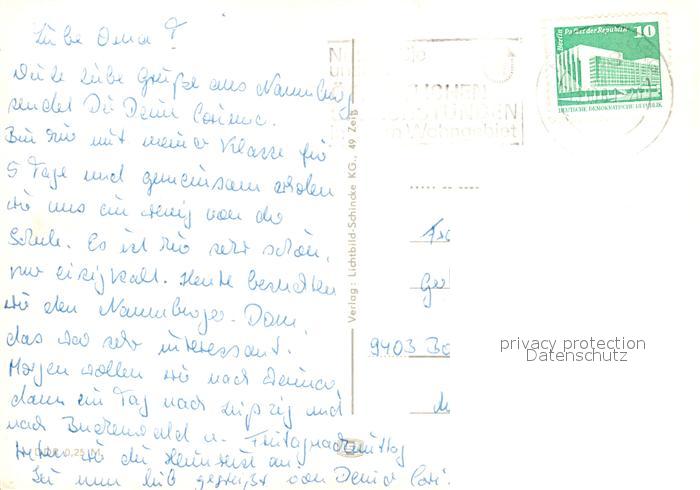 Liebe Oma!
Viele liebe Grüße aus Naumburg
sendet Dir Deine Corinna.
Bin hier mit meiner Klasse für
5 Tage und gemeinsam erholen
wir uns ein wenig von der
Schule. Es ist hier sehr schön,
nur eisigkalt. Heute besuchten
wir den Naumburger-Dom,
das war sehr interessant.
Morgen wollen wir nach Weimar,
dann ein Tag nach Leipzig und
nach Buchenwald u. Freitagnachmittag
treten wir die Heimreise an.
Sei nun lieb gegrüßt von Deiner Cori.
Verlag: Lichtbild-Schincke KG., 49 Zeitz
LICHEN
STUNDEN
Wohngebiet
Berlin Palast der Republik 10
DEUTSCHE DEMOKRATISCHE REPUBLIK
9403 Bo
privacy protection
Datenschutz
0,25 M